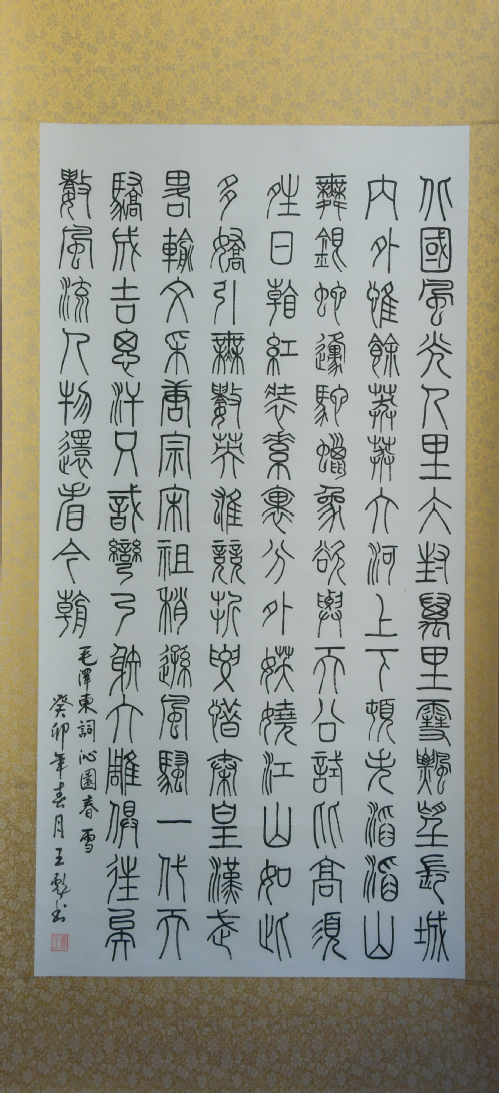 北國風光千里冰封萬里雪飄望長城
內外惟餘莽莽大河上下頓失滔滔山
舞銀蛇原馳蠟象欲與天公試比高須
晴日看紅裝素裹分外妖嬈江山如此
多嬌引無數英雄競折腰惜秦皇漢武
略輸文采唐宗宋祖稍遜風騷一代天
驕成吉思汗只識彎弓射大雕俱往矣
數風流人物還看今朝
毛澤東詞沁園春雪
癸卯年春月王书